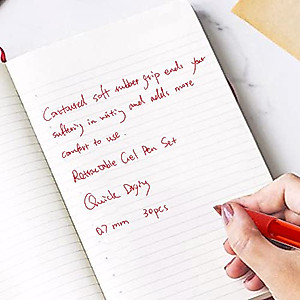 Contoured soft rubber grip ends your
suffering in writing and adds more
comfort to use.
Retractable Gel Pen Set
Quick Drying
0.7 mm 30pcs